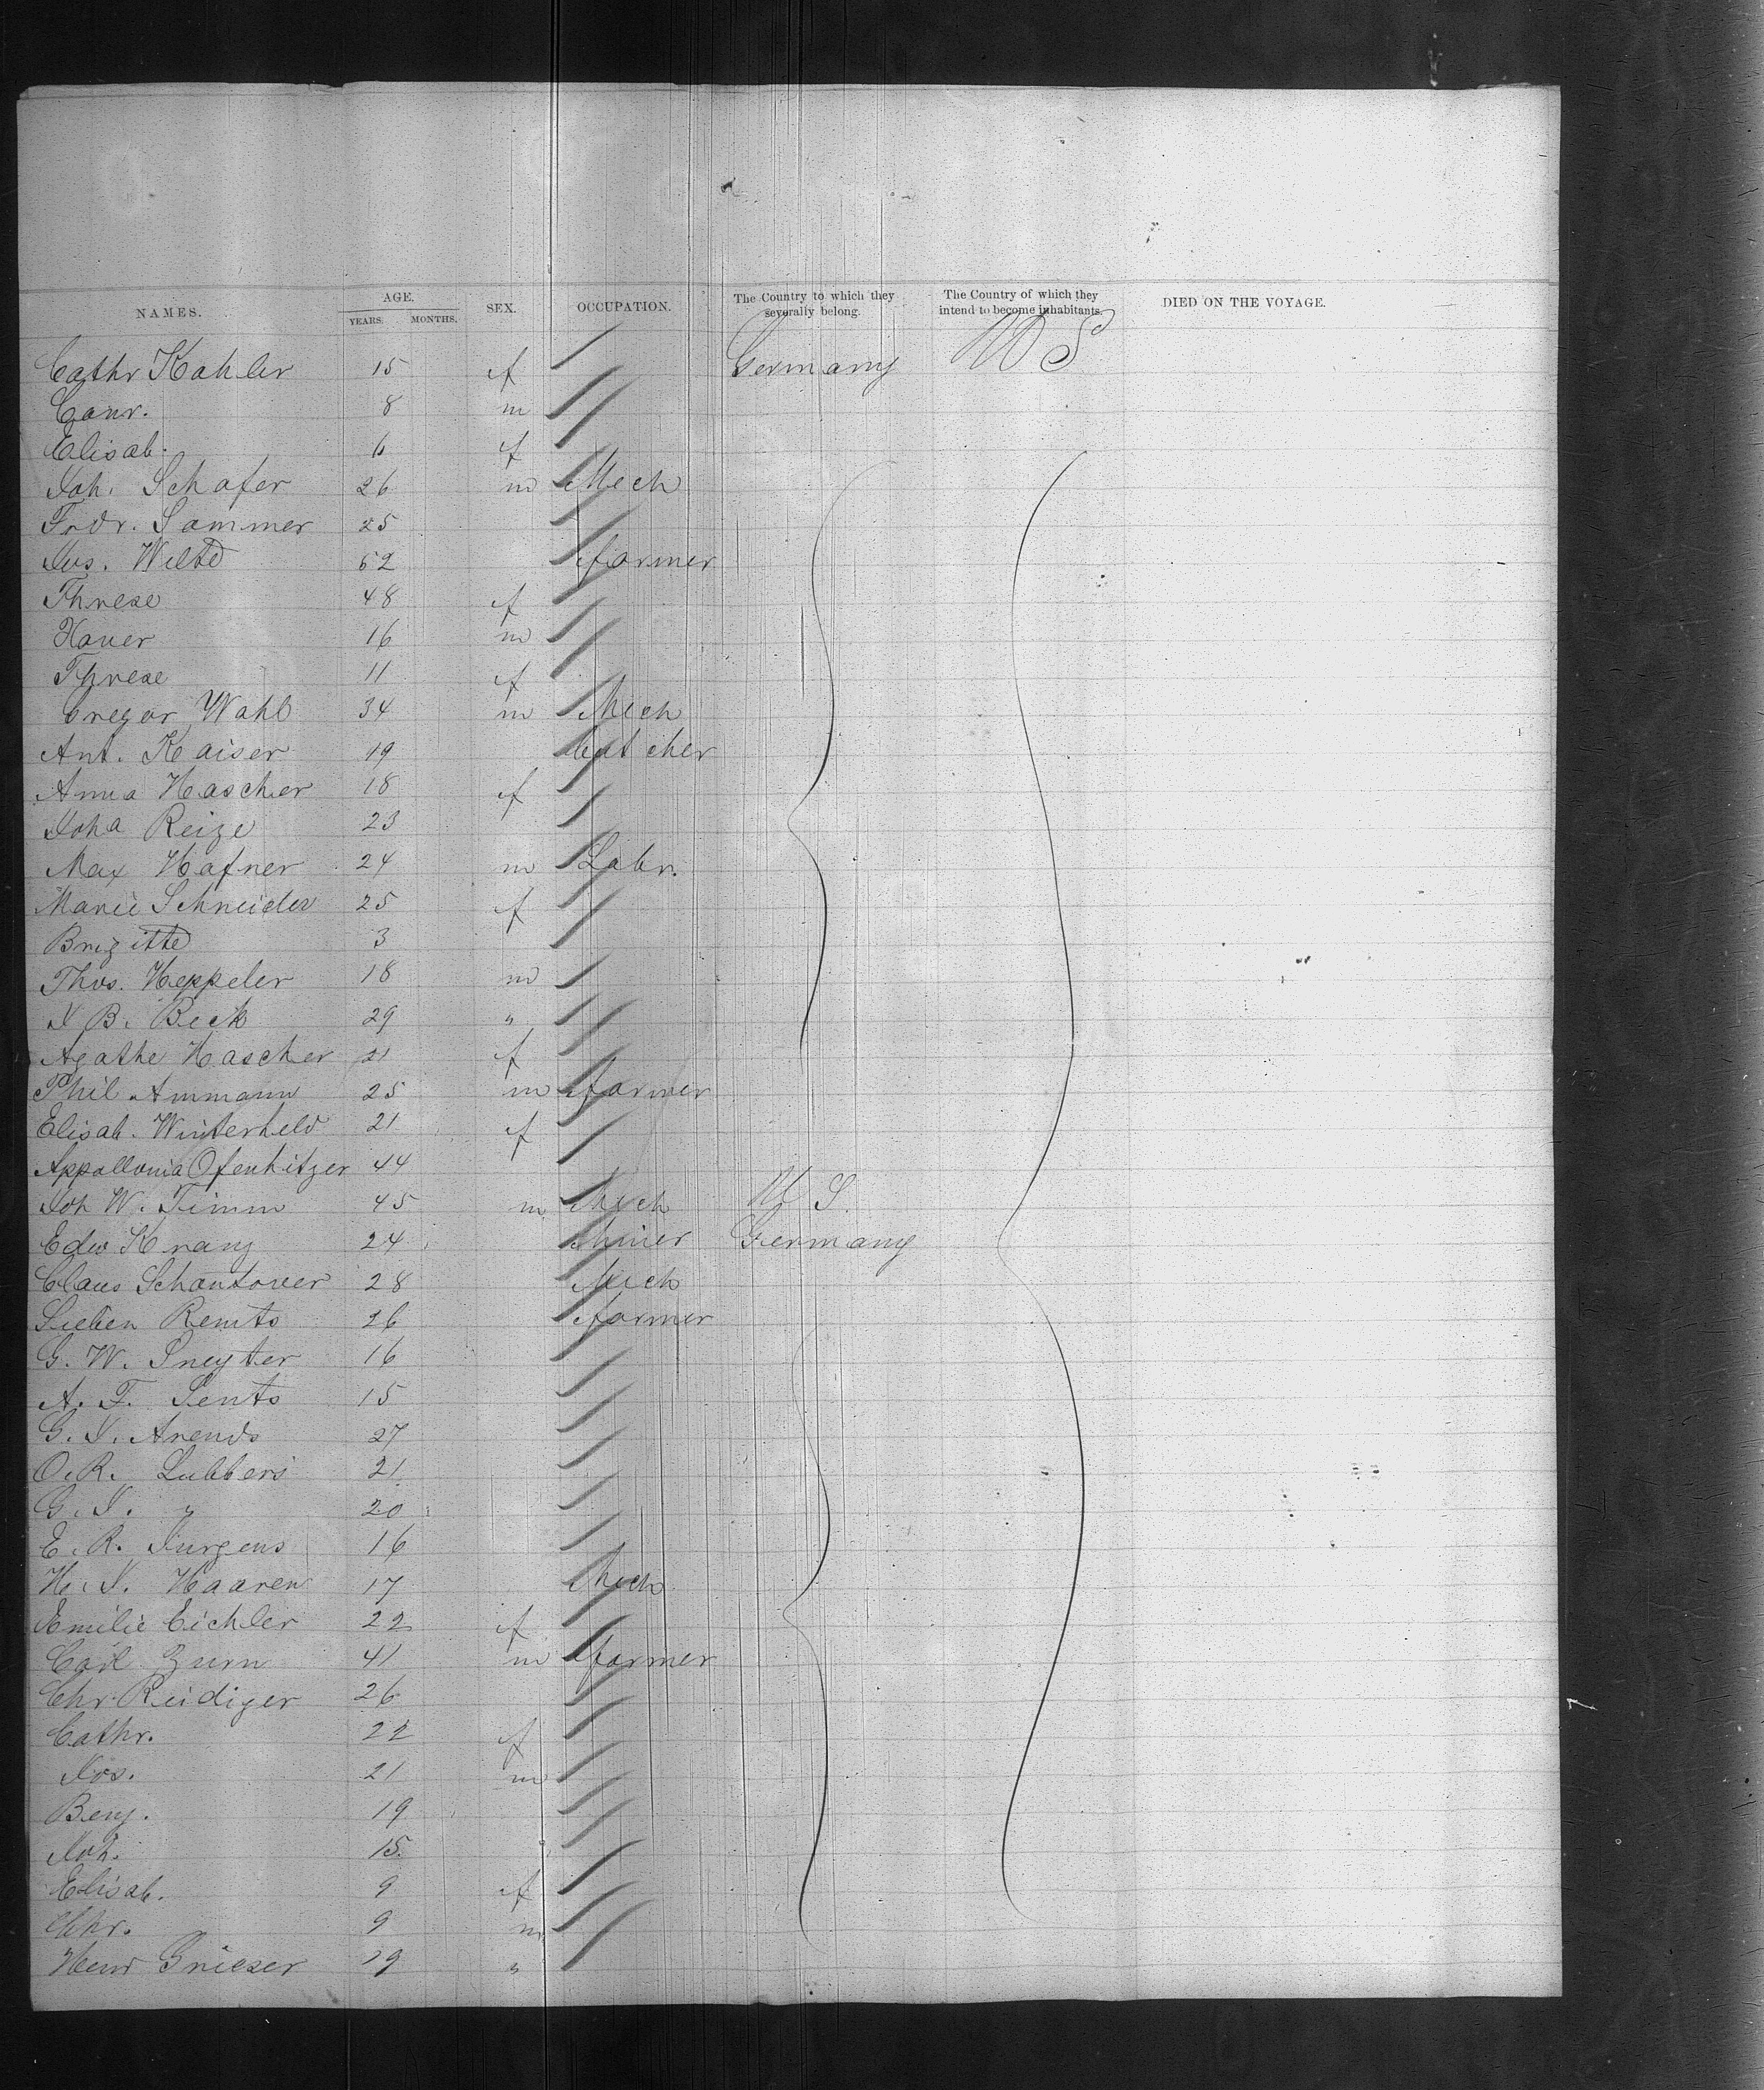 NAMES. AGE. YEARS. MONTHS. SEX. OCCUPATION. The Country to which they severally belong. The Country of which they intend to become inhabitants. DIED ON THE VOYAGE.
Cathr Kahler 15 f Germany U S
Conr. 8 m
Elisab. 6 f
Joh. Schafer 26 m Mech
Frdr. Sammer 25
Jos. Wild 52 farmer
Threse 48 f
Xaver 16 m
Threse 11 f
Gregor Wahl 34 m Mech
Ant. Kaiser 19 butcher
Anna Hascher 18 f
Joha Reize 23
Max Hafner 24 m Labr.
Marie Schneider 25 f
Brigitte 3
Thos. Heppeler 18 m
J B. Beck 29 "
Agathe Hascher 21 f
Phil Ammann 25 m farmer
Elisab. Winterheld 21 f
Appollonia Ofenhitzer 44
Joh W. Timm 45 m Mech U S.
Edw Kranz 24 Miner Germany
Claus Schantover 28 Mech
Sieben Remts 26 farmer
G. W. Sneyter 16
A. F. Sents 15
G. J. Arends 27
O. R. Lubbers 21
G. J. " 20
E. R. Jurgens 16
H. J. Haaren 17 Mech
Emilie Eichler 22 f
Carl Zurn 41 m farmer
Chr. Reidiger 26
Cathr. 22 f
Jos. 21 m
Benj. 19
Joh. 15
Elisab. 9 f
Chr. 9 m
Henr Grieser 19 "